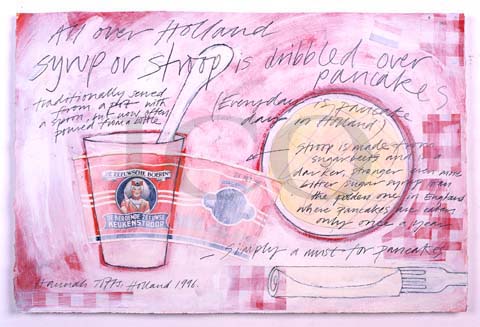 All over Holland
syrup or stroop is dribbled over
pancakes
traditionally served
from a pot with
a spoon, but now often
poured from a bottle
(Everyday is pancake
day in Holland)
stroop is made from
sugarbeets and is a
darker, stronger even more
bitter sugar syrup than
the golden one in England
where pancakes are eaten
only once a year
DE ZEEUWSCHE BOERIN
DE BEROEMDE ZEEUWSE
KEUKENSTROOP
– Simply a must for pancakes
Hannah Holland 1996.